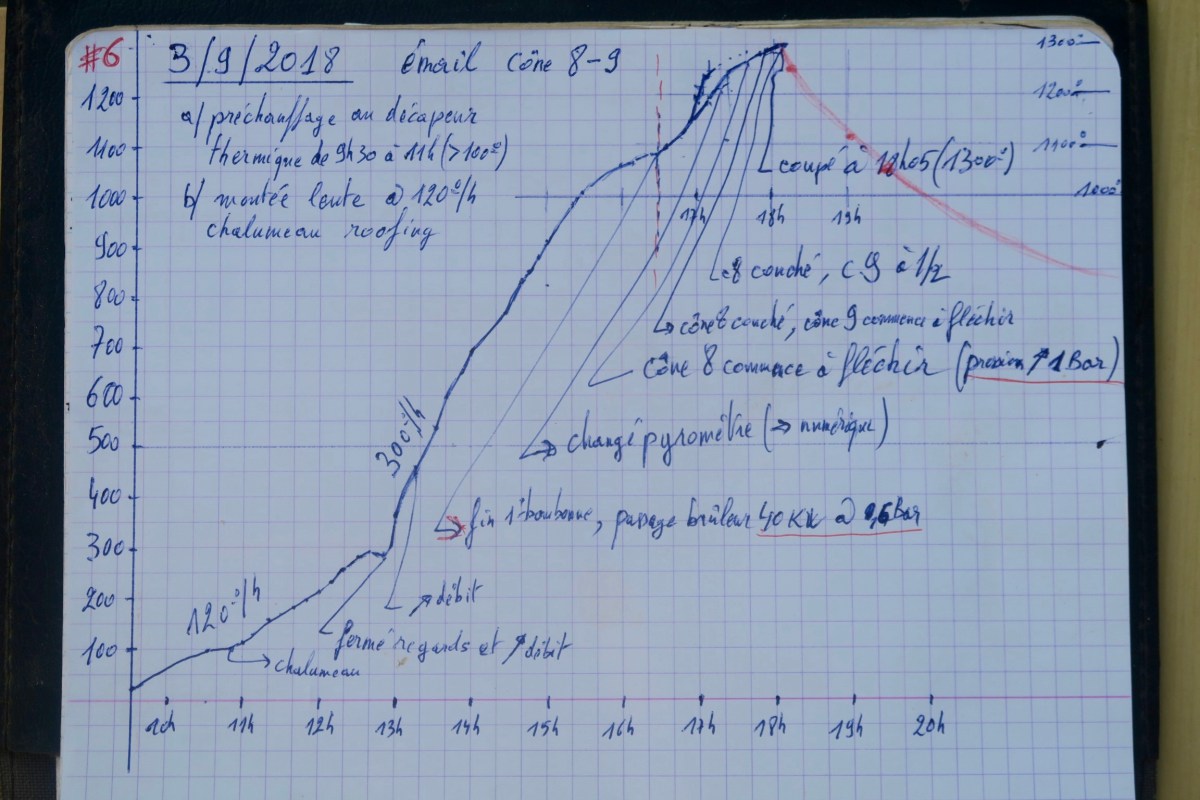 #6 3/9/2018 émail cône 8-9
a) préchauffage au décapeur
thermique de 9h30 à 11h (>100°)
b) montée lente @ 120°/h
chalumeau roofing
1300°
1200°
1100°
1000°
1200
1100
1000
900
800
700
600
500
400
300
200
100
17h 18h 19h
coupé à 18h05 (1300°)
c8 couché, c.9 à 1/2
cône 8 couché, cône 9 commence à fléchir
cône 8 commence à fléchir (pression ↗ 1 Bar)
changé pyromètre (→ numérique)
fin 1e bonbonne, passage brûleur 40 KW @ 0,6 Bar
300°/h
120°/h
↗ débit
fermé regards et ↗ débit
chalumeau
10h 11h 12h 13h 14h 15h 16h 17h 18h 19h 20h